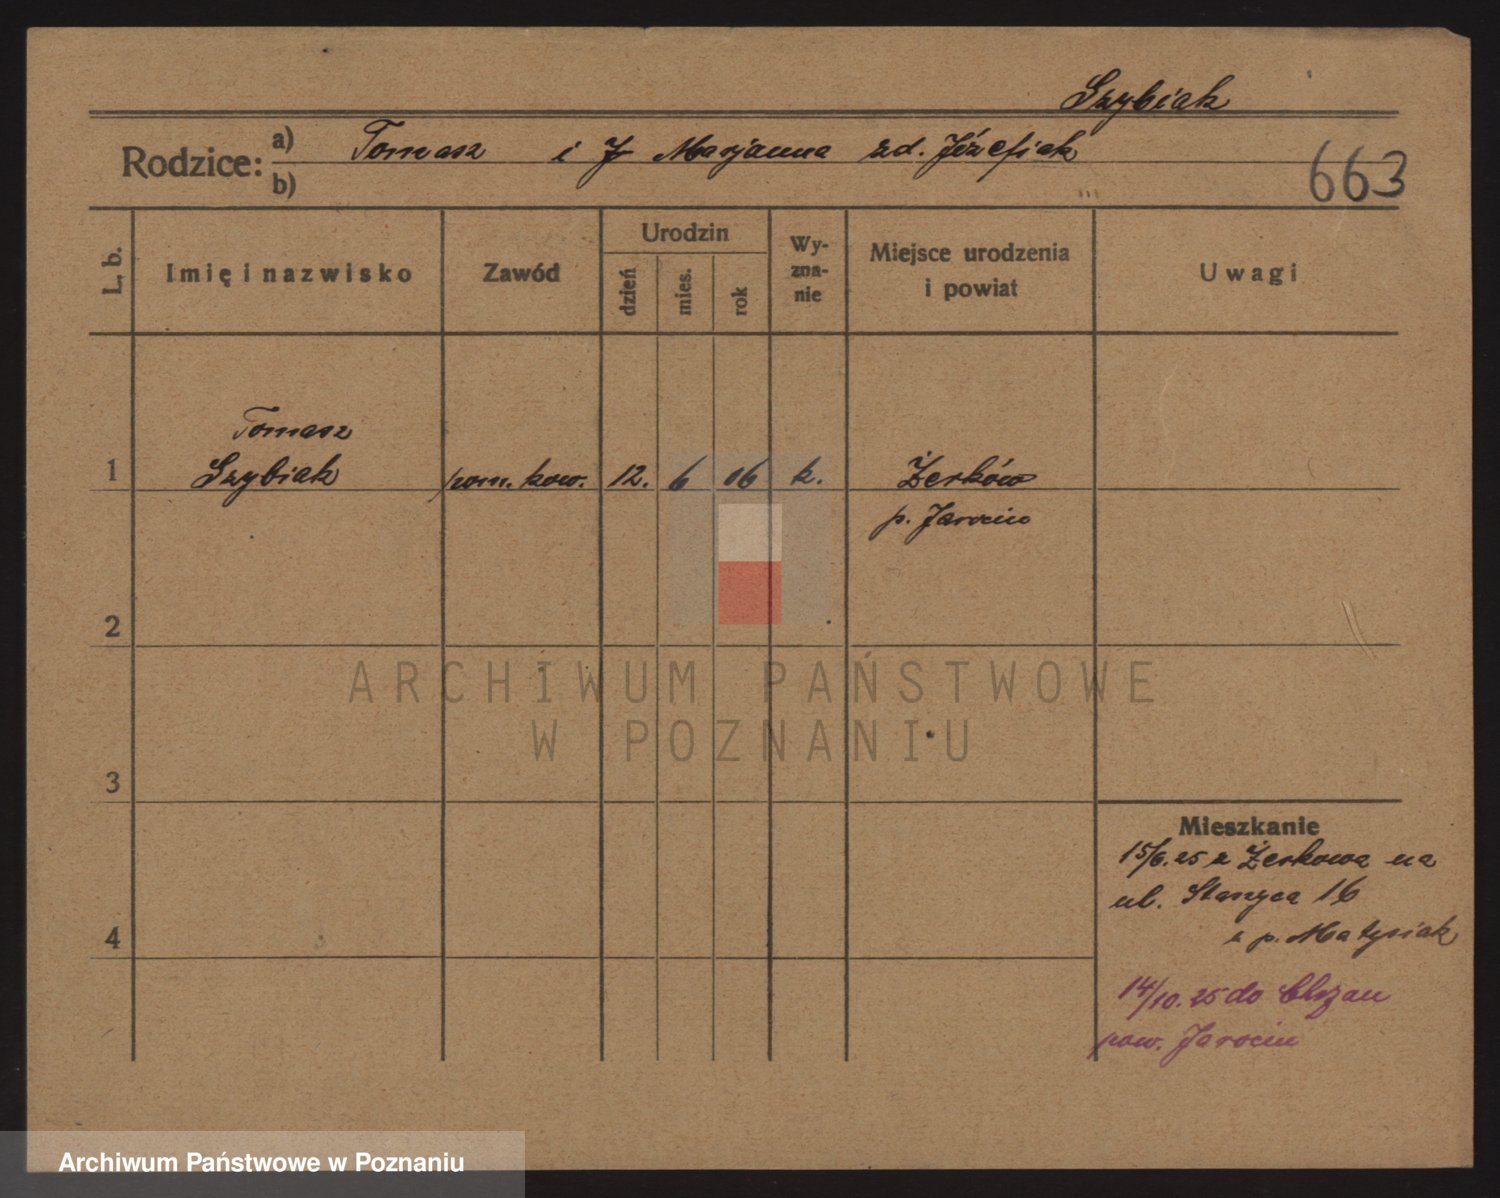 Szybiak
Rodzice: a) Tomasz i J Marjanna zd. Józefiak
b)
663
L. b.
Imię i nazwisko
Zawód
Urodzin
dzień
mies.
rok
Wy-
zna-
nie
Miejsce urodzenia
i powiat
Uwagi
Tomasz
1 Szybiak pom. kow. 12. 6 06 k. Żerków
p. Jarocin
2
3
4
Mieszkanie
15/6.25 z Żerkowa na
ul. Staszyca 16
z p. Matysiak
14/10.25 do Chrzan
pow. Jarocin
ARCHIWUM PAŃSTWOWE
W POZNANIU
Archiwum Państwowe w Poznaniu